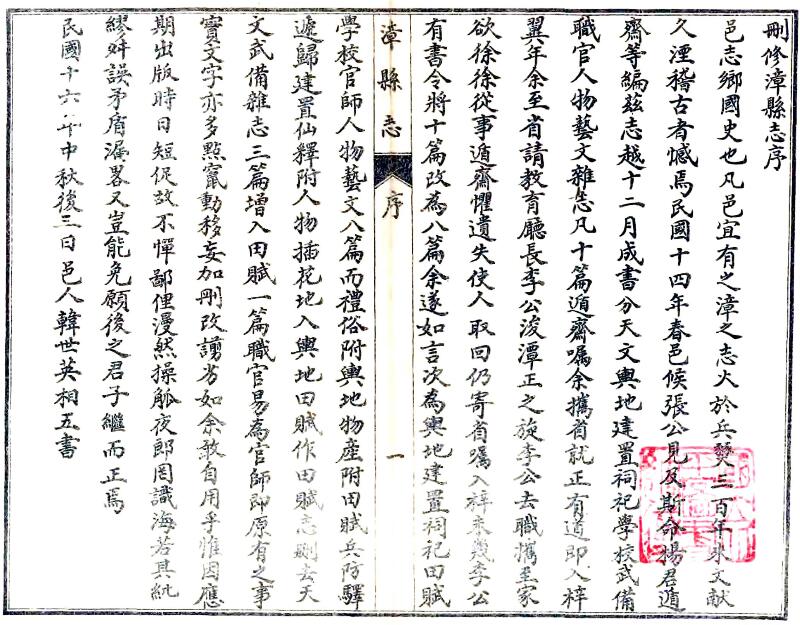 刪修漳縣志序
邑志鄉國史也凡邑宜有之漳之志火於兵燹三百年來文獻
久湮稽古者憾焉民國十四年春邑候張公見及斯命楊君遁
齋等編茲志越十二月成書分天文輿地建置祠祀學校武備
職官人物藝文雜志凡十篇遁齋囑余攜省就正有道即入梓
翼年余至省請教育廳長李公浚潭正之旋李公去職攜至家
欲徐徐從事遁齋懼遺失使人取回仍寄省囑入梓未幾李公
有書令將十篇改為八篇余遂如言次為輿地建置祠祀田賦
漳縣志
序
一
學校官師人物藝文八篇而禮俗附輿地物產附田賦兵防驛
遞歸建置仙釋附人物插花地入輿地田賦作田賦志刪去天
文武備雜志三篇增入田賦一篇職官易為官師即原有之事
實文字亦多點竄動移妄加刪改謭劣如余敢自用乎惟因應
期出版時日短促故不憚鄙俚漫然操觚夜郎罔識海若具紕
繆舛誤矛盾漏畧又豈能免願後之君子繼而正焉
民國十六年中秋後三日邑人韓世英相五書